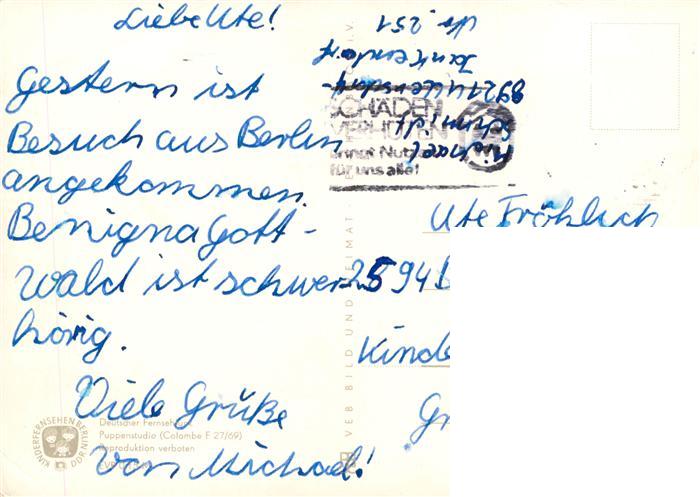 Liebe Ute!
Gestern ist
Besuch aus Berlin
angekommen.
Benigna Gott-
wald ist schwer-
hörig.
Viele Grüße
von Michael!
Michael
Schmidt
Jankendorf
Nr. 251
SCHÄDEN
VERHÜTEN
bringt Nutzen
für uns alle!
Ute Fröhlich
2594
Kinde
Gr
KINDERFERNSEHEN BERLIN
DDR
Deutscher Fernsehfunk
Puppenstudio (Colombe F 27/69)
Reproduktion verboten
VEB BILD UND HEIMAT